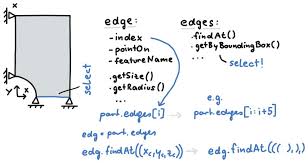 x
Y
x
select
edge:
- index
- pointOn
- featureName
...
.getSize()
.getRadius()
...
edges:
.findAt()
.getByBoundingBox()
...
select!
e.g.
part.edges[i]
part.edges[i:i+5]
edg = part.edges
edg.findAt((xc,yc,zc))
edg.findAt((( ),),)